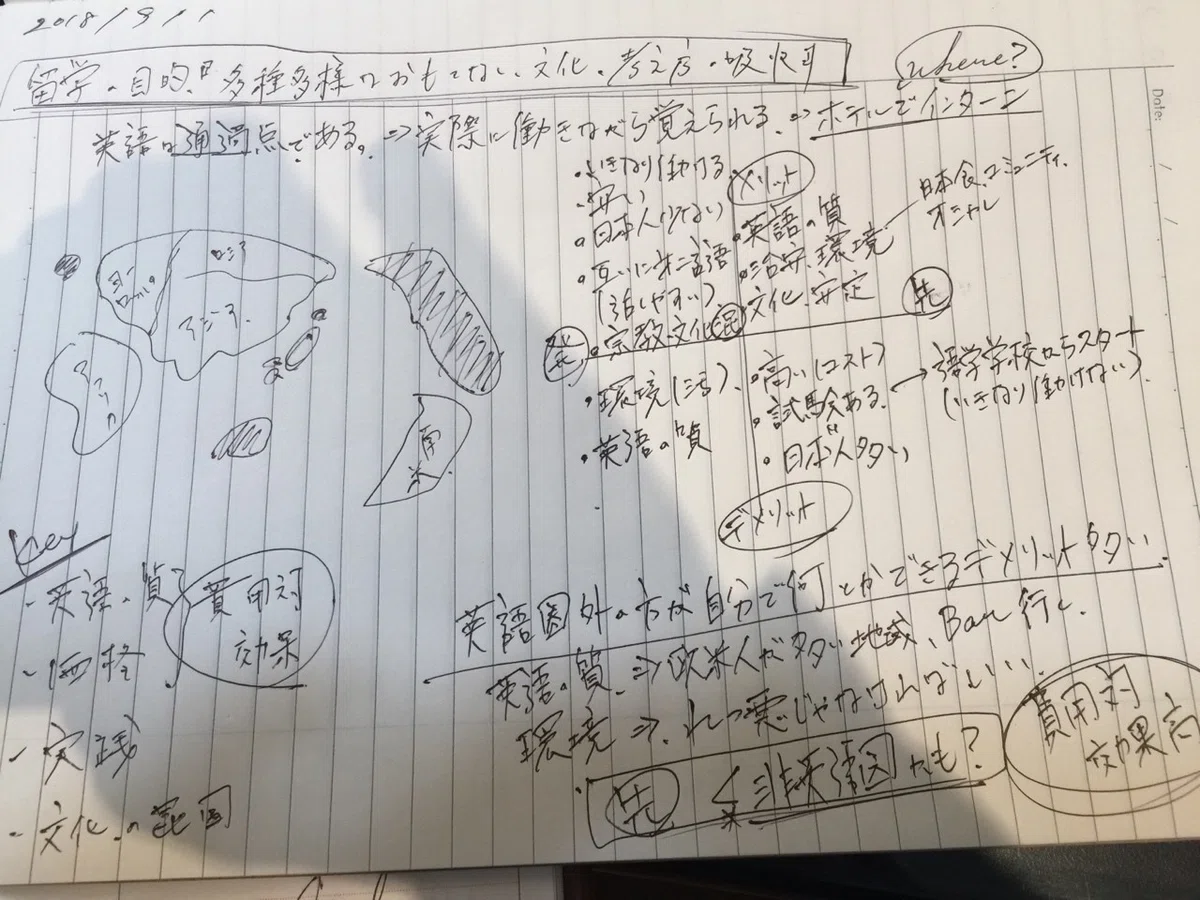 2018/9/1
留学の目的『多種多様なおもてなし、文化、考え方の吸収』
where?
英語は通過点である。⇒実際に働きながら覚えられる。⇒ホテルでインターン
メリット
・いきなり働ける
・安い
・日本人少ない
・互いに第二言語
(話しやすい)
・宗教・文化
・英語の質
・治安、環境
日本食、コミュニティ、
オシャレ
文化、安定
先
発
・環境(活)
・英語の質
・高い(コスト)
・試験ある。→語学学校からスタート
(いきなり働けない)
・日本人多い
デメリット
ヨーロッパ
ロシア
アジア
アフリカ
南米
Key
- 英語の質
- 価格
費用対
効果
- 実践
- 文化の混同
英語圏外の方が自分で何とかできるデメリット多い
英語の質 ⇒ 欧米人が多い地域、Bar行く、
環境 ⇒ れつ悪じゃなければいい…
先 < 非英語圏かも?
費用対
効果高